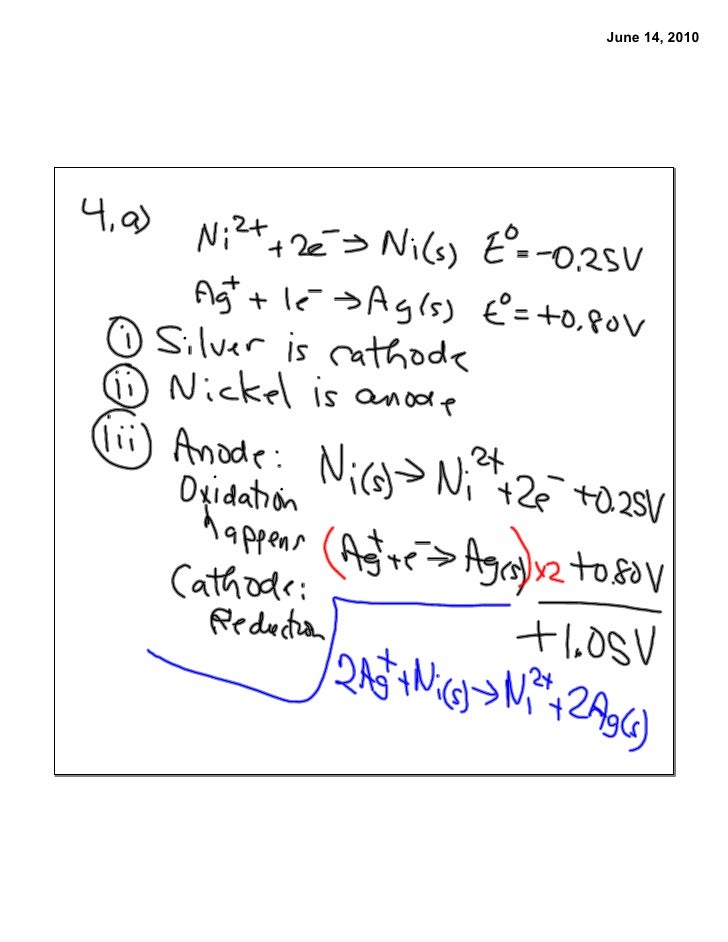 June 14, 2010
4. a)
Ni²⁺ + 2e⁻ → Ni(s) E⁰ = -0.25V
Ag⁺ + 1e⁻ → Ag(s) E⁰ = +0.80V
(i) Silver is cathode
(ii) Nickel is anode
(iii) Anode: Ni(s) → Ni²⁺ + 2e⁻ +0.25V
Oxidation
happens
(Ag⁺ + e⁻ → Ag(s)) x2 +0.80V
Cathode:
Reduction
+1.05V
2Ag⁺ + Ni(s) → Ni²⁺ + 2Ag(s)